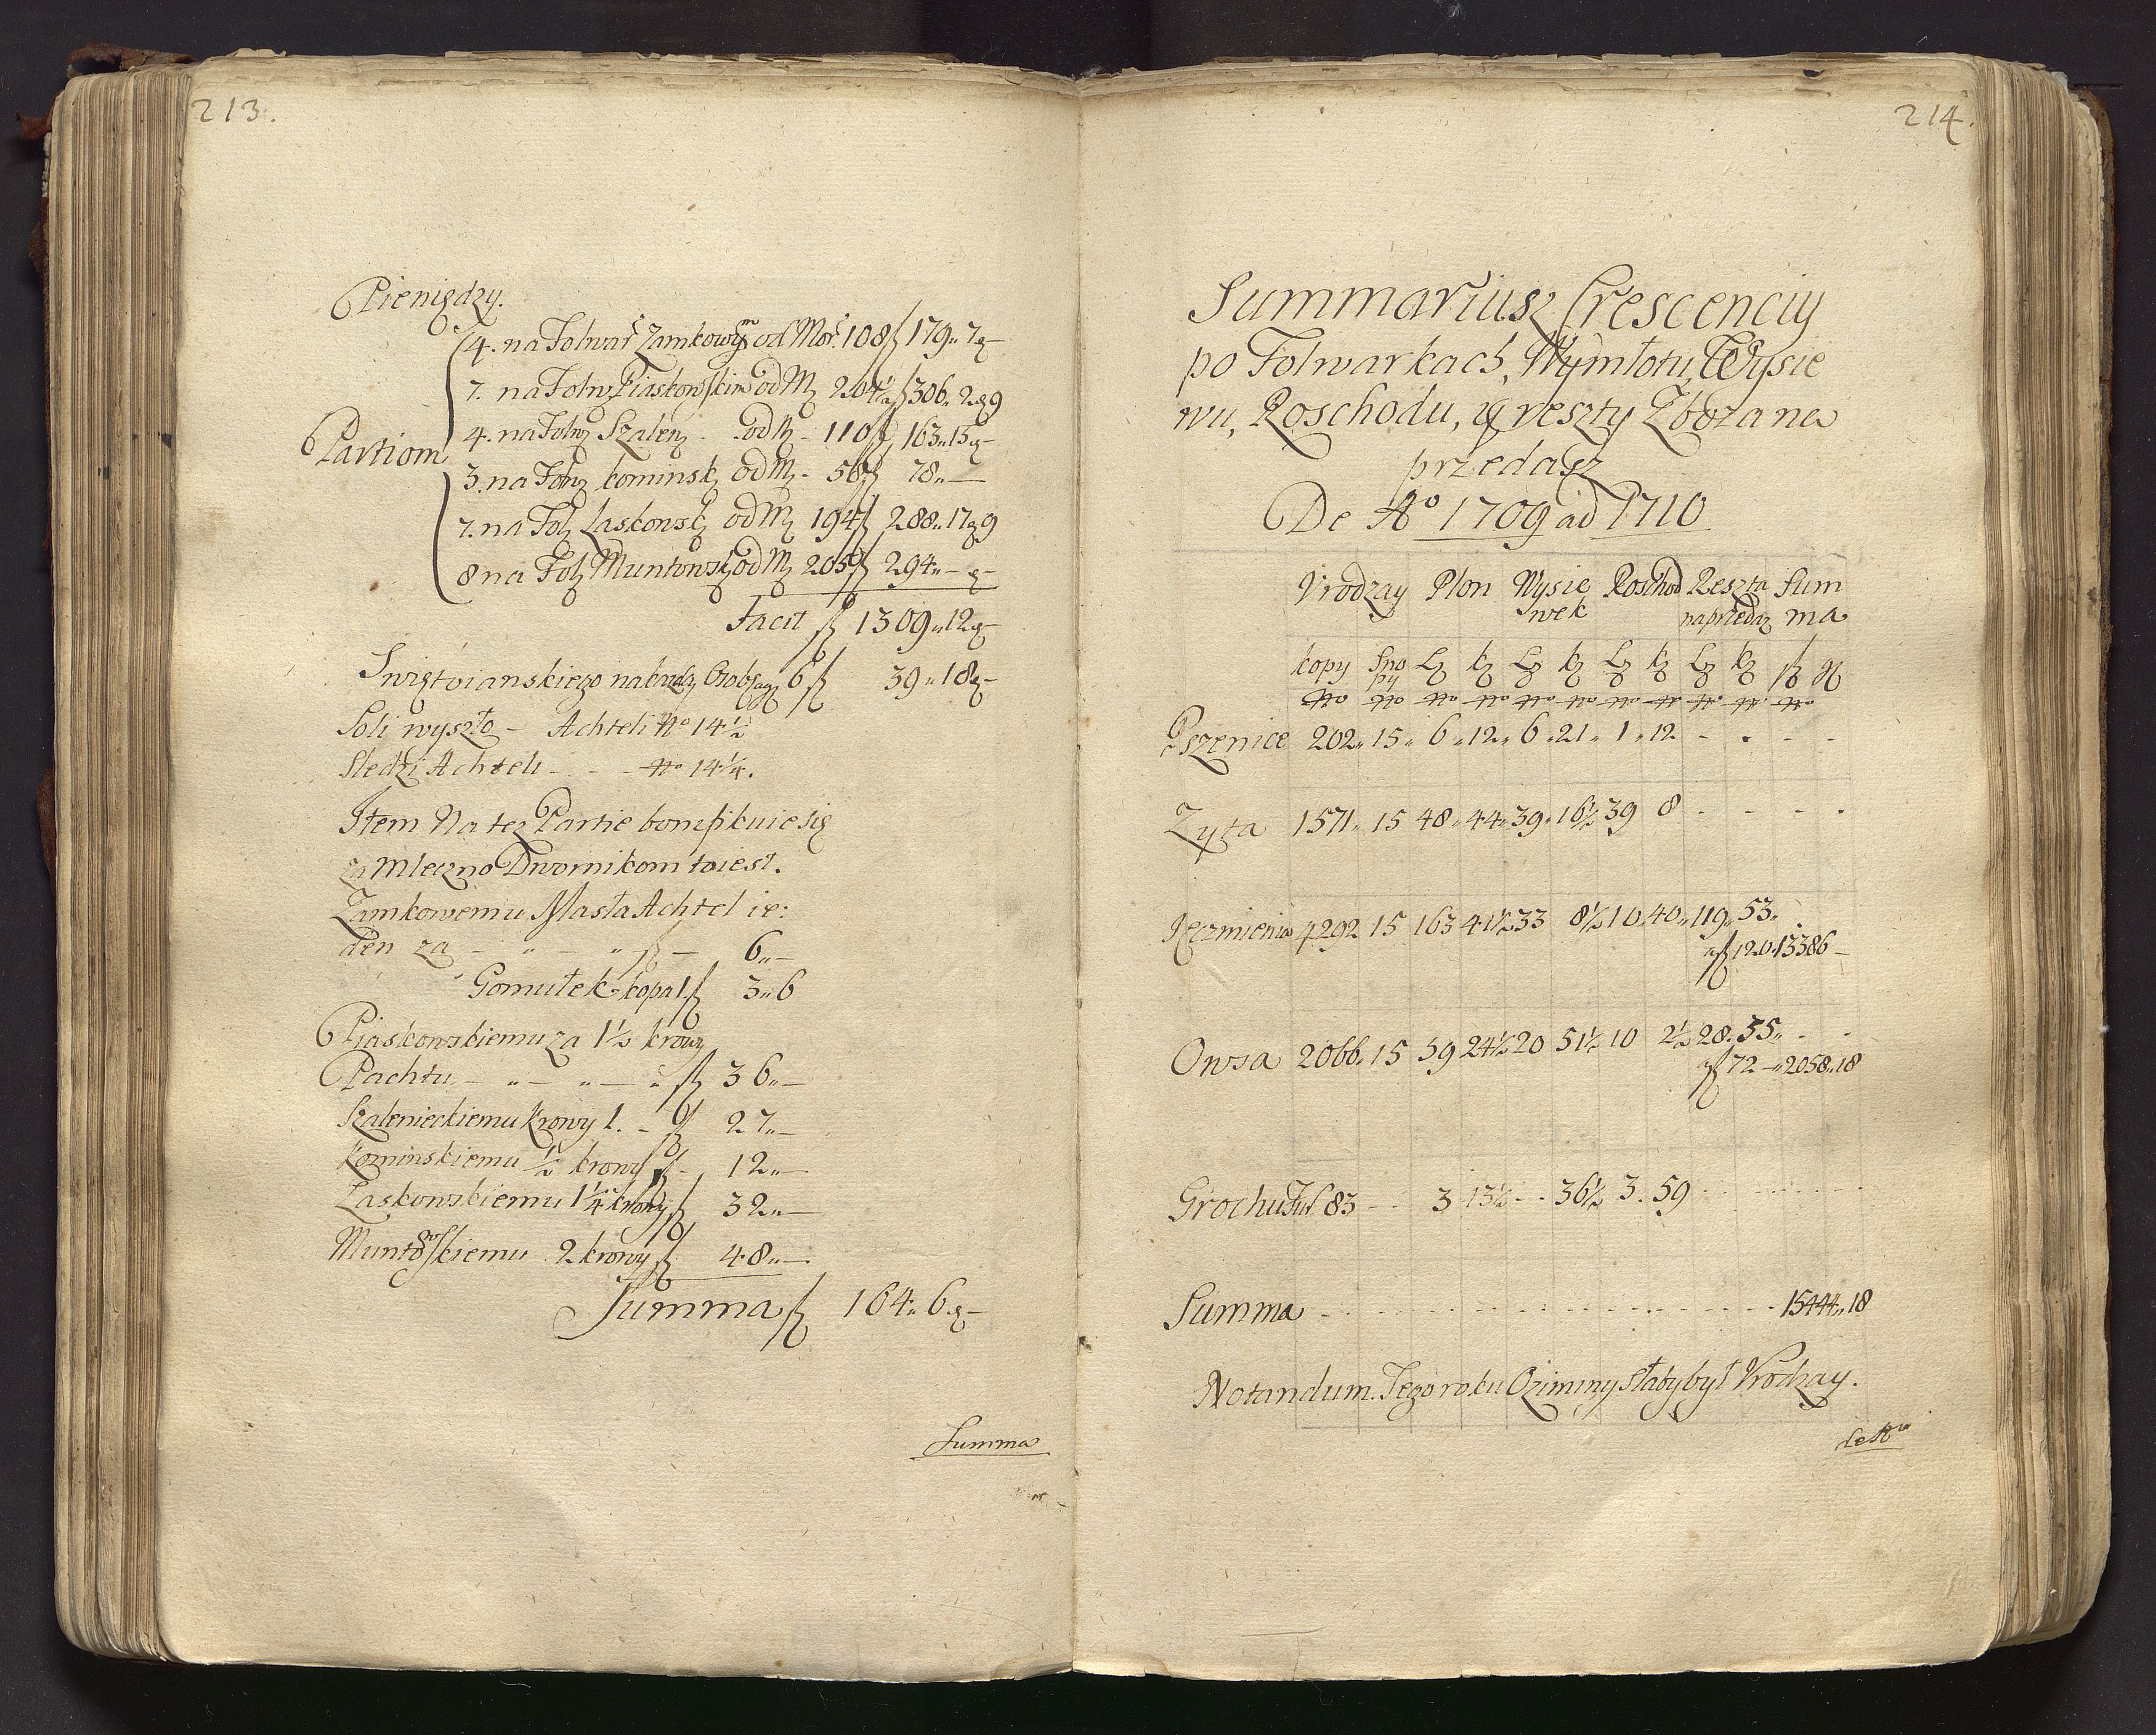 213.
Pieniędzy.
Partiom
4. na Folwar Zamkowym od Mor. 108 fl 179„ 7 g –
7. na Folw Piaskowskim od M 204½ fl 306„ 2 g 9
4. na Folw Szalen - od M - 110 fl 163„ 13 g –
3. na Folw Kominsk od M - 58 fl 78„ –
7. na Fol Laskowsk od M 194 fl 288„ 17 g 9
8 na Fol Muntowsk od M 205 fl 294„ – g –
Facit fl 1309„ 12 g –
Swiętoianskiego na każdą Osobę 6 fl 39„ 18 g –
Soli wyszło – Achteli No 14½
Sledzi Achteli - - - No 14¼.
Item Na tez Partie bonifikuie się
za Mleczno Dwornikom toiest.
Zamkowemu Masła Achtel ie:
den za – „ – „ fl – 6„ –
Gomułek kopa 1 fl 3„ 6
Piaskowskiemu za 1½ krowy
Pachtu – „ – „ – „ fl 36„ –
Szalenieckiemu Krowy 1. – fl 27„ –
Kominskiemu ½ krowy fl – 12„ –
Laskowskiemu 1¼ krowy fl 32„ –
Muntowskiemu 2 krowy fl 48„ –
Summa fl 164„ 6 g –
Summa
214.
Summariusz Crescenciy
po Folwarkach, Wymłotu, Wysie
wu, Roschodu, y reszty Zboza na
przedasz
De Ao 1709 ad 1710
Vrodzay Plon Wysie Roschod Reszta Sum
wek naprzedaz ma
kopy Sno Ł k Ł k Ł k Ł k fl g
py
No No No No No No No No No No No
Pszenice 202„ 15„ 6„ 12„ 6„ 21„ 1„ 12 - - - -
Zyta 1571„ 15 48„ 44„ 39„ 16½ 39 8 - - - -
Jęczmienia 4292 15 163 41½ 33 8½ 10„ 40„ 119„ 53„
a fl 120„ 13386 –
Owsa 2066„ 15 59 24½ 20 51½ 10 2½ 28„ 35„ - -
a fl 72 – 2058„ 18
Grochu Fur 83 - - 3 13½ - - 36½ 3„ 59
Summa - - - - 15444„ 18
Notandum. Tego roku Oziminy słaby był Vrodzay.
de Ao